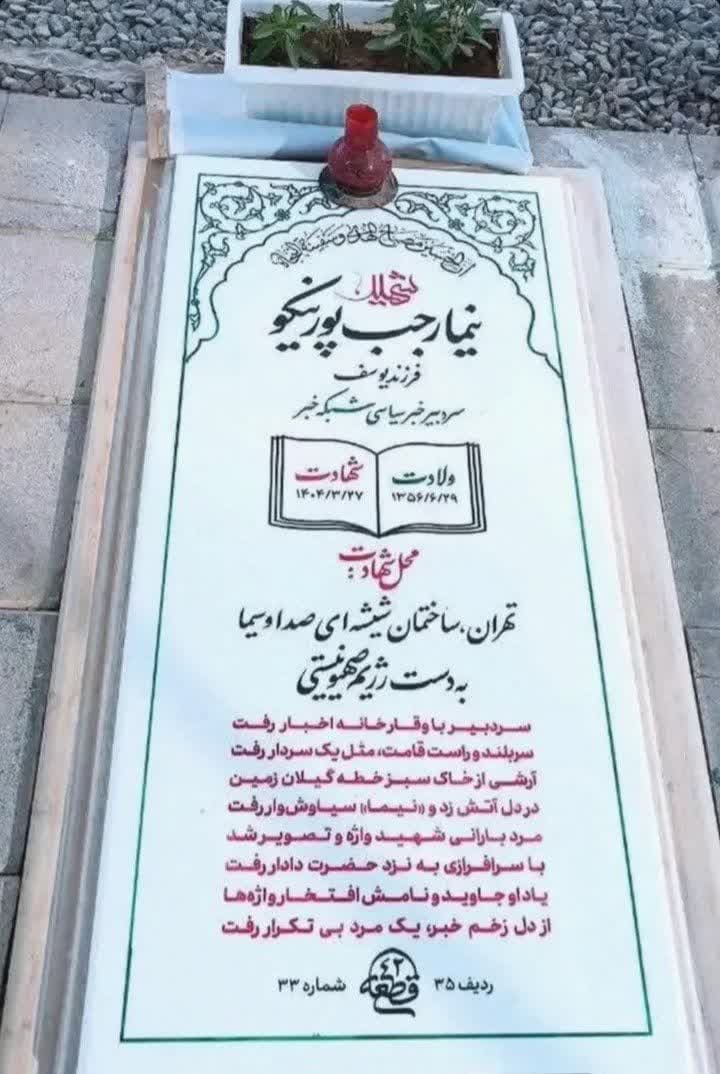 ان الحسین مصباح الهدی و سفینة النجاة
شهید
نیما رجب پور نیکو
فرزند یوسف
سردبیر خبر سیاسی شبکه خبر
ولادت
۱۳۵۶/۶/۲۹
شهادت
۱۴۰۴/۳/۲۷
محل شهادت:
تهران، ساختمان شیشه ای صدا و سیما
به دست رژیم صهیونیستی
سردبیر با وقار خانه اخبار رفت
سربلند و راست قامت، مثل یک سردار رفت
آرشی از خاک سبز خطه گیلان زمین
در دل آتش زد و «نیما» سیاوش‌وار رفت
مرد بارانی شهید واژه و تصویر شد
با سرافرازی به نزد حضرت دادار رفت
یاد او جاوید و نامش افتخار واژه‌ها
از دل زخم خبر، یک مرد بی تکرار رفت
ردیف ۳۵ قطعه ۴۲ شماره ۳۳